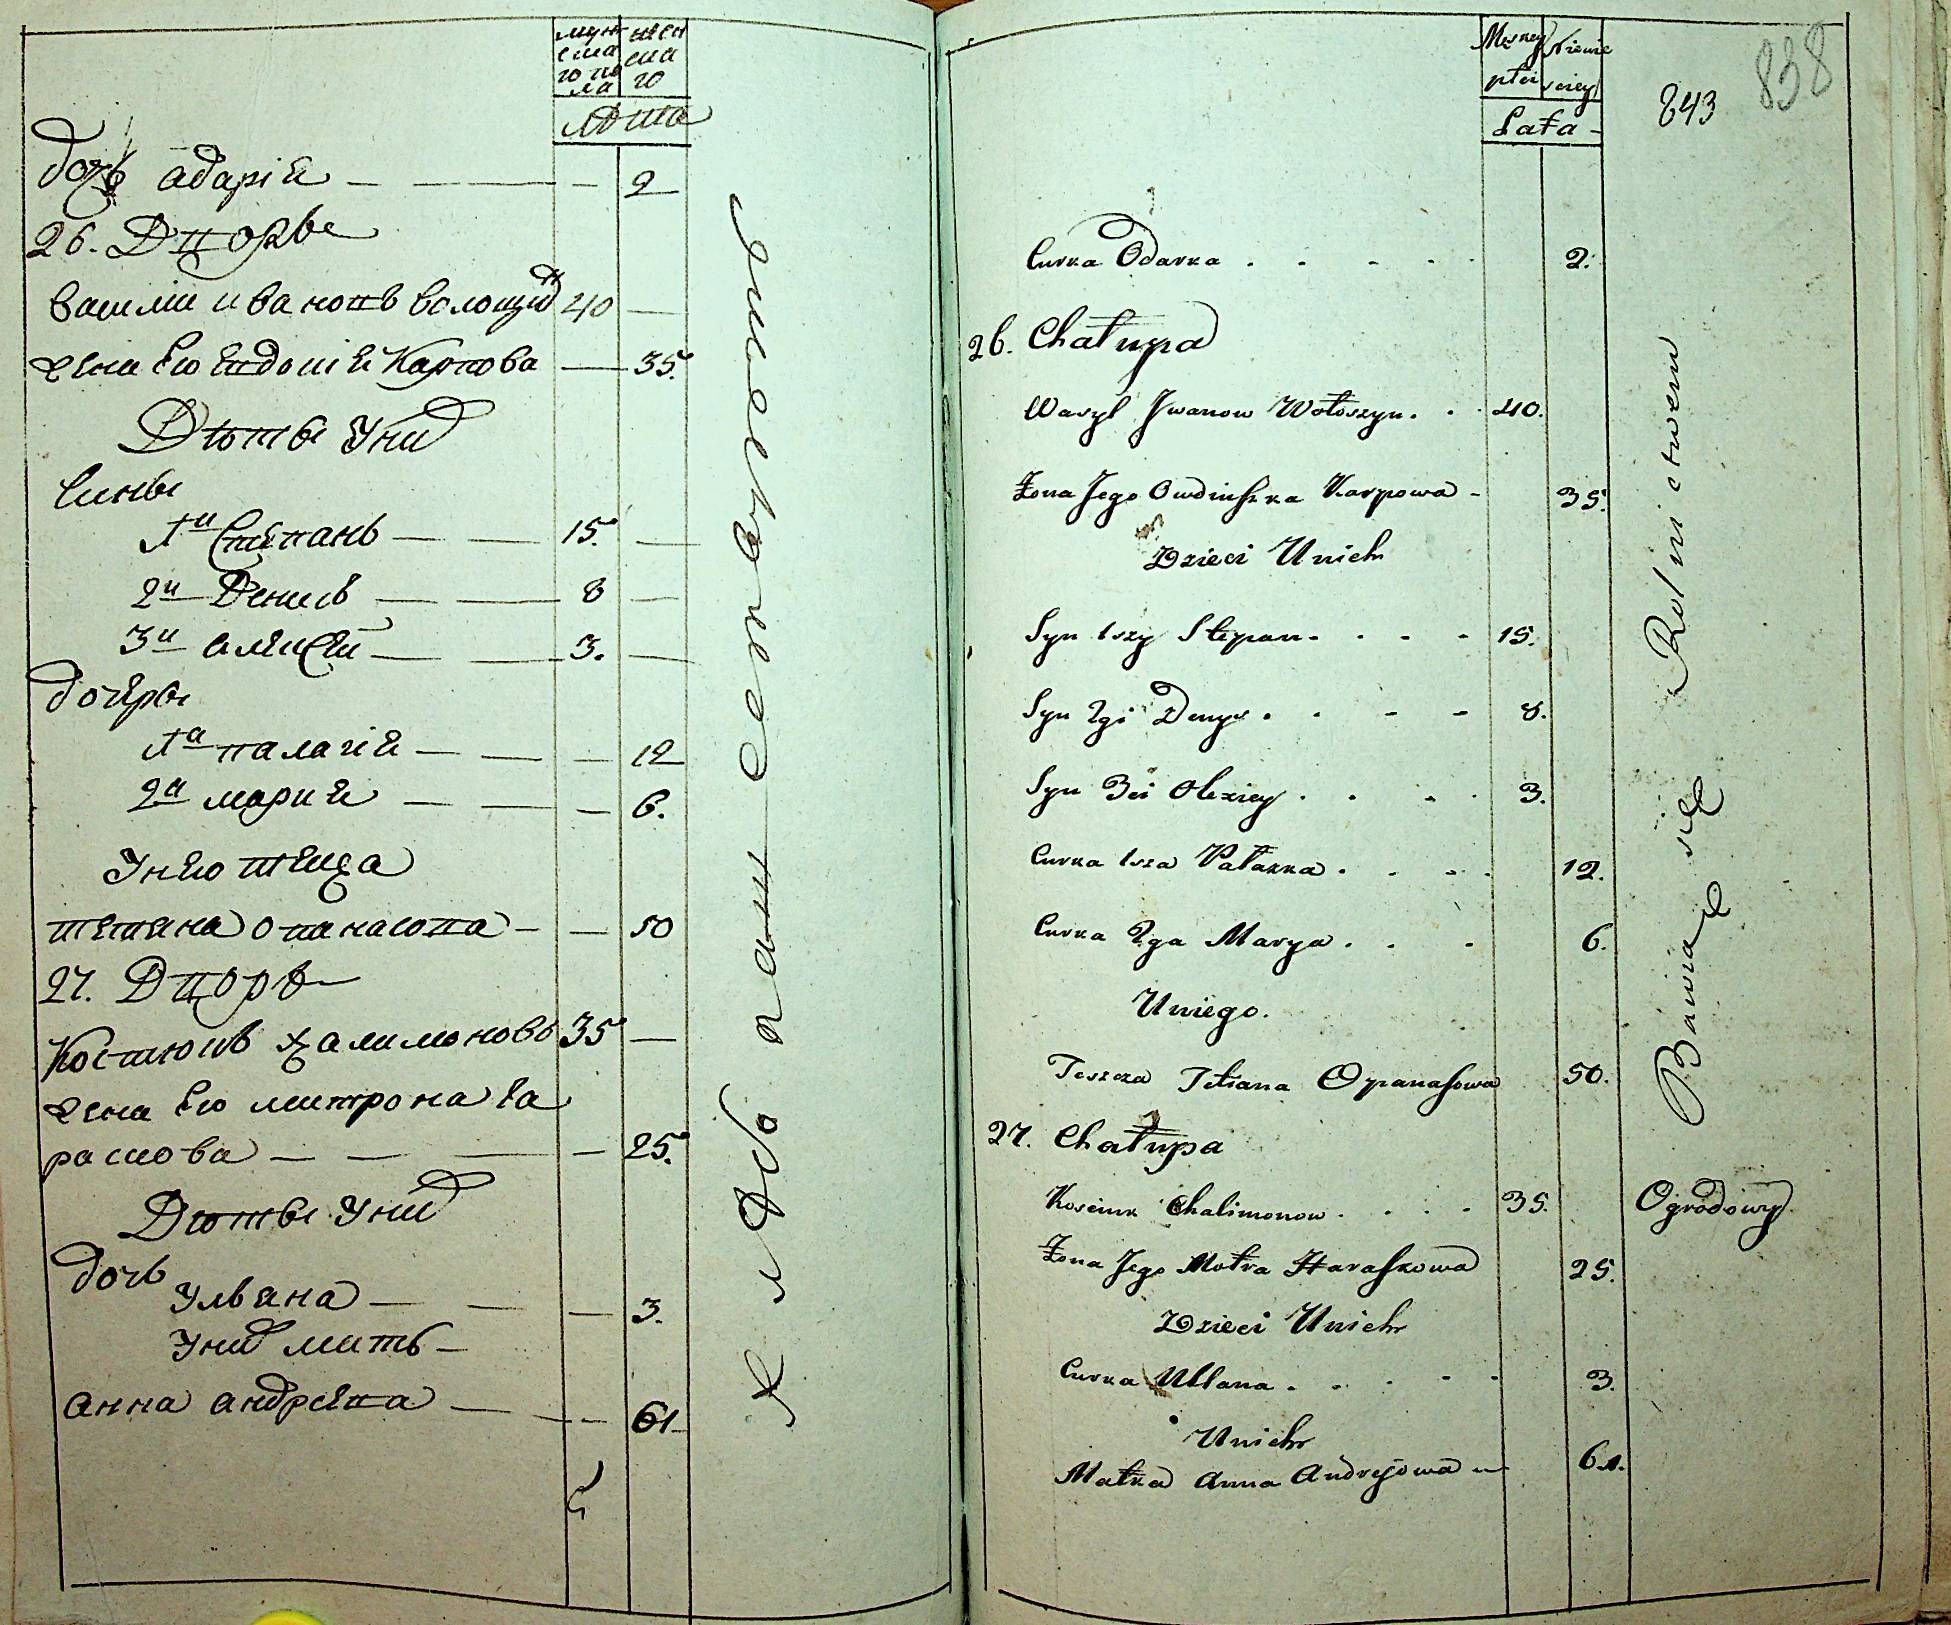 мужеска го пола
женска го
лѣта
дочь адарія — — — 2
26. Дворъ
Василь ивановъ волошин 40 —
жена его Евдокія Карпова — 35.
Дѣты У них
Сины
1й Степанъ — — 15. —
2й Денисъ — — 8 —
3й алексей — — 3. —
дочеры
1а палагія — — — 12
2а мария — — — 6.
У него теща
тетяна опанасова — — 50
27. Дворъ
Костюкъ халимоновъ 35 —
жена его мотрона га
раскова — — — — 25.
Дѣты У них
дочь
Ульяна — — — 3.
У них мать —
анна андреева — — — 61
хлѣбопашествомъ
Męzkey płci
Niewieściey
Lata -
843
838
Curka Odarka . - - - . 2.
26. Chałupa
Wasyl Jwanow Wołoszyn. . . 40.
Żona Jego Owdiuszka Karpowa - 35.
Dzieci Unich
Syn 1szy Stepan. . . - - 15.
Syn 2gi Denys . . - - 8.
Syn 3ci Olexiey . . - . 3.
Curka 1sza Pałazka . . . . 12.
Curka 2ga Marya . . - 6.
Uniego.
Teszcza Tetiana Opanasowa 50.
27. Chałupa
Kosciuk Chalimonow . . . . 35. Ogrodowy
Żona Jego Motra Haraskowa 25.
Dzieci Unich
Curka Ullana . . . . . 3.
Unich
Matka Anna Andrejowa - 61.
Bawią się Rolnictwem